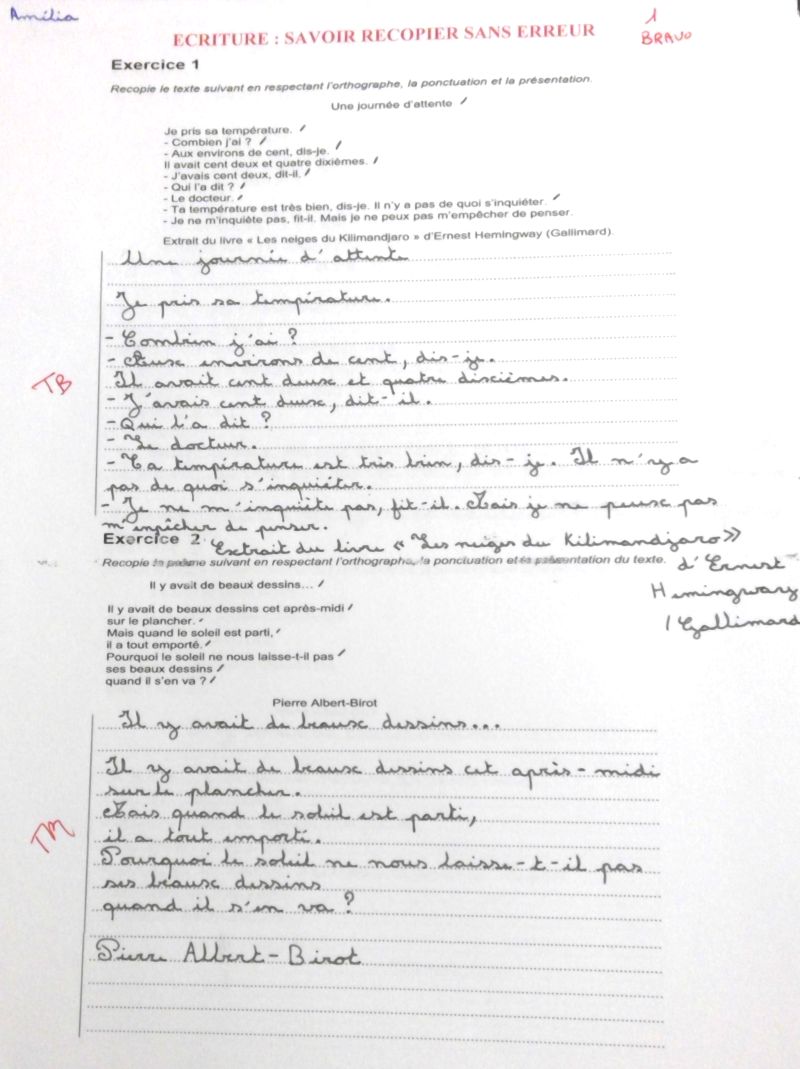 Amélia
ECRITURE : SAVOIR RECOPIER SANS ERREUR
1
BRAVO
Exercice 1
Recopie le texte suivant en respectant l'orthographe, la ponctuation et la présentation.
Une journée d'attente
Je pris sa température.
- Combien j'ai ?
- Aux environs de cent, dis-je.
Il avait cent deux et quatre dixièmes.
- J'avais cent deux, dit-il.
- Qui l'a dit ?
- Le docteur.
- Ta température est très bien, dis-je. Il n'y a pas de quoi s'inquiéter.
- Je ne m'inquiète pas, fit-il. Mais je ne peux pas m'empêcher de penser.
Extrait du livre « Les neiges du Kilimandjaro » d'Ernest Hemingway (Gallimard).
Une journée d'attente
Je pris sa température.
- Combien j'ai ?
- Aux environs de cent, dis-je.
TB
Il avait cent deux et quatre dixièmes.
- J'avais cent deux, dit-il.
- Qui l'a dit ?
- Le docteur.
- Ta température est très bien, dis-je. Il n'y a
pas de quoi s'inquiéter.
- Je ne m'inquiète pas, fit-il. Mais je ne peux pas
m'enpêcher de penser.
Exercice 2
Extrait du livre « Les neiges du Kilimandjaro »
d'Ernest
Hemingway
/ Gallimard
Recopie le poème suivant en respectant l'orthographe, la ponctuation et la présentation du texte.
Il y avait de beaux dessins...
Il y avait de beaux dessins cet après-midi
sur le plancher.
Mais quand le soleil est parti,
il a tout emporté.
Pourquoi le soleil ne nous laisse-t-il pas
ses beaux dessins
quand il s'en va ?
Pierre Albert-Birot
Il y avait de beaux dessins...
Il y avait de beaux dessins cet après-midi
sur le plancher.
Mais quand le soleil est parti,
il a tout emporté.
Pourquoi le soleil ne nous laisse-t-il pas
ses beaux dessins
quand il s'en va ?
Pierre Albert-Birot